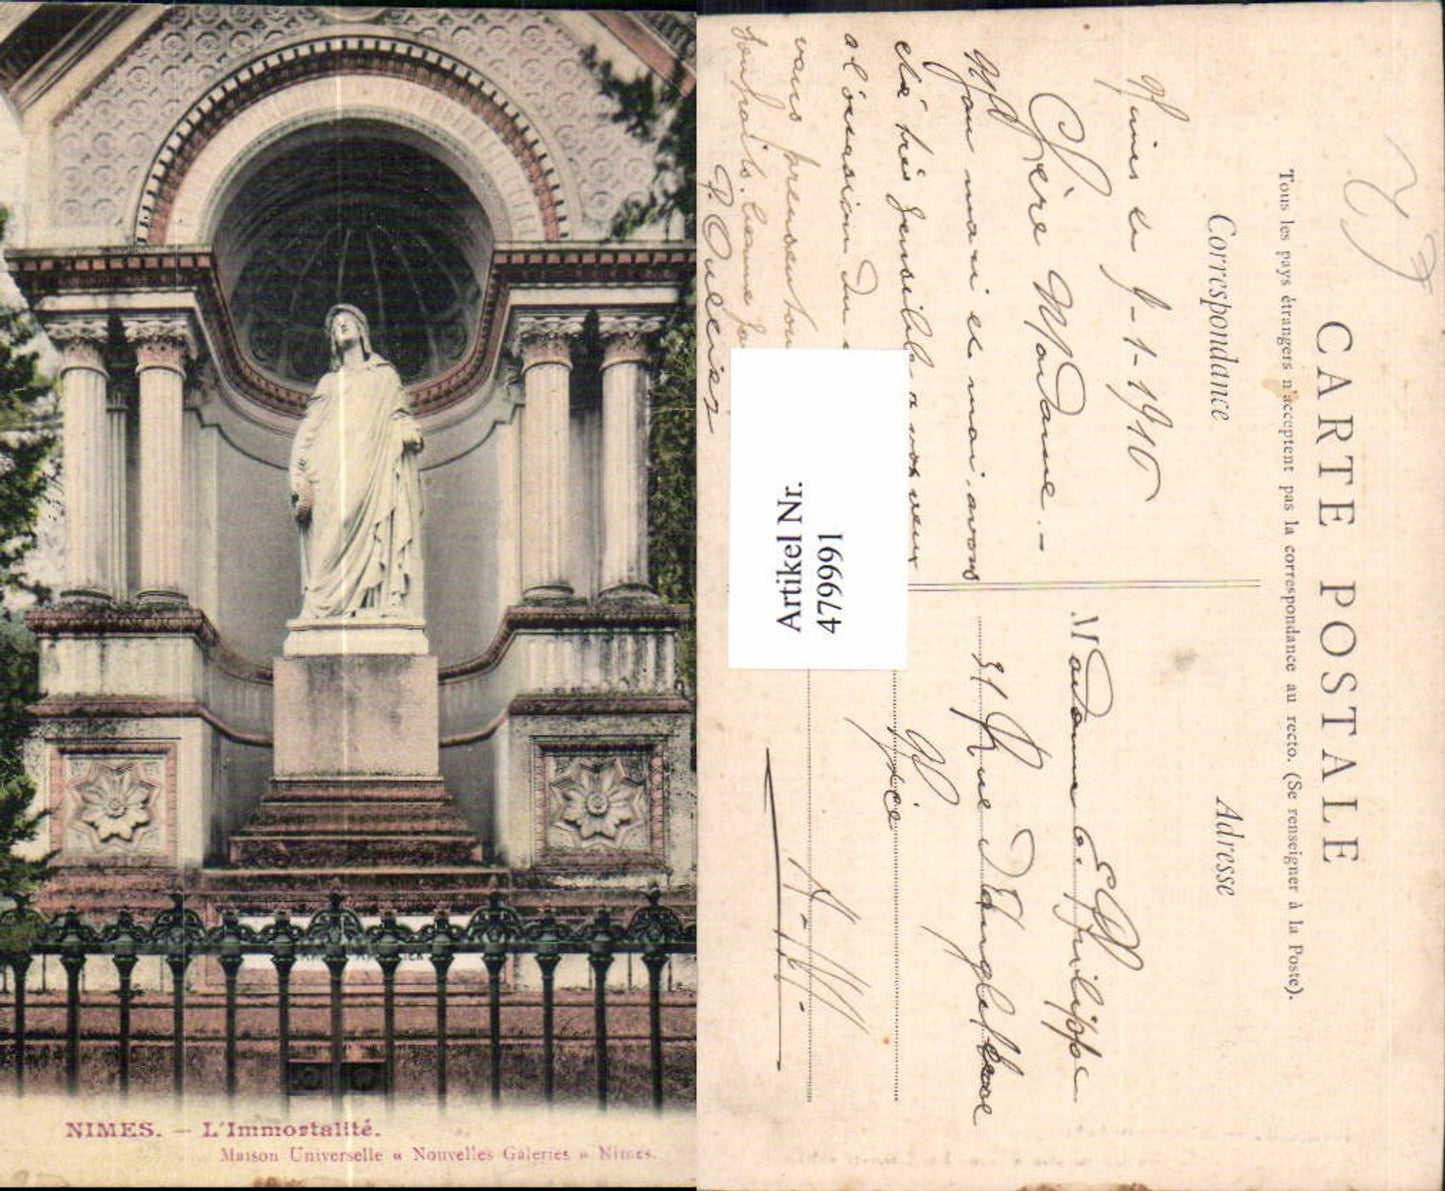 NIMES. — L'Immortalité.
Maison Universelle « Nouvelles Galeries » Nimes.
CARTE POSTALE
Tous les pays étrangers n'acceptent pas la correspondance au recto. (Se renseigner à la Poste).
Correspondance
Adresse
Nimes le 9-1-1910
Chère Madame. -
Mon mari et moi, avons
été très sensible a vos vœux
a l'occasion du
vous
souhaits. comme
Madame E. Philippe
31 Rue d'Angleterre
Nice
A-M-
Artikel Nr.
4799691